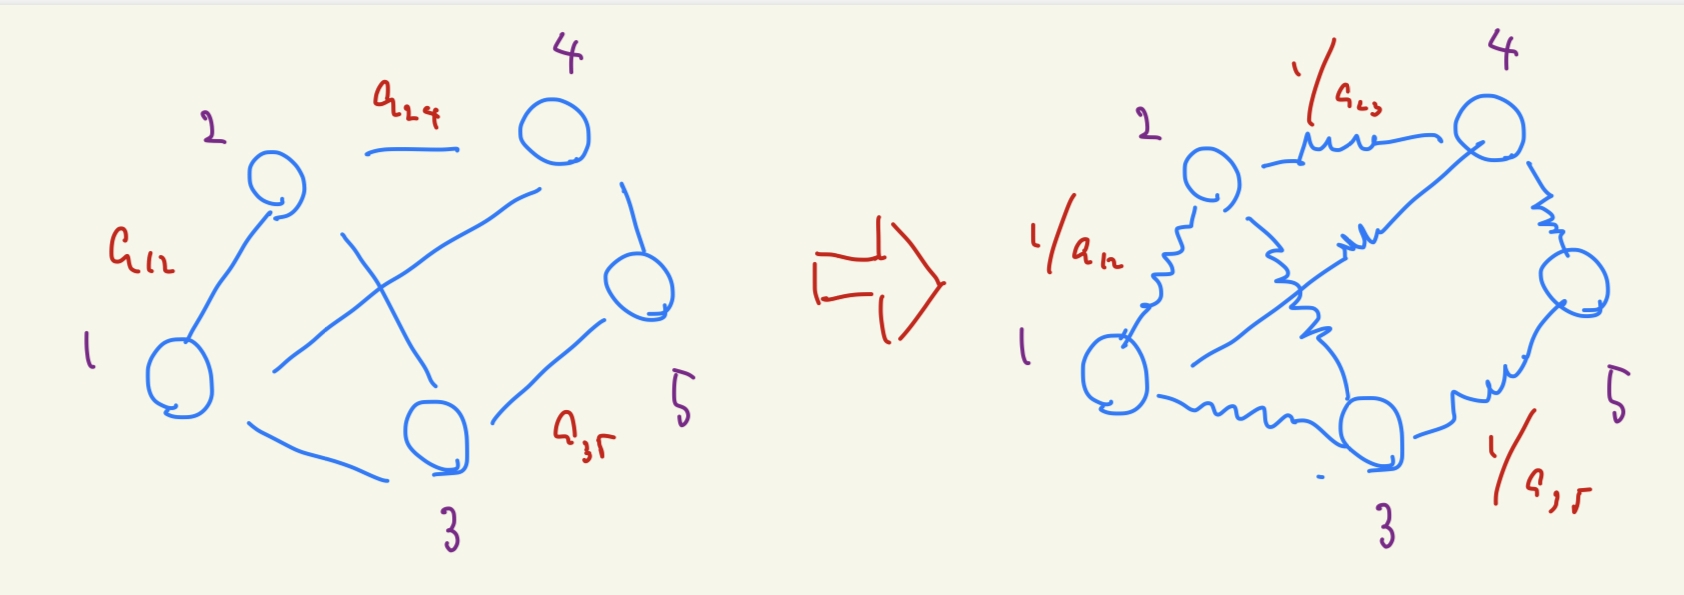 4
2
a24
a12
1
5
a35
3
4
1/a23
2
1/a12
1
5
1/a35
3